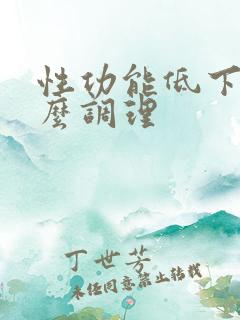 性功能低下
麼調理
丁世芳
未经同意禁止转载